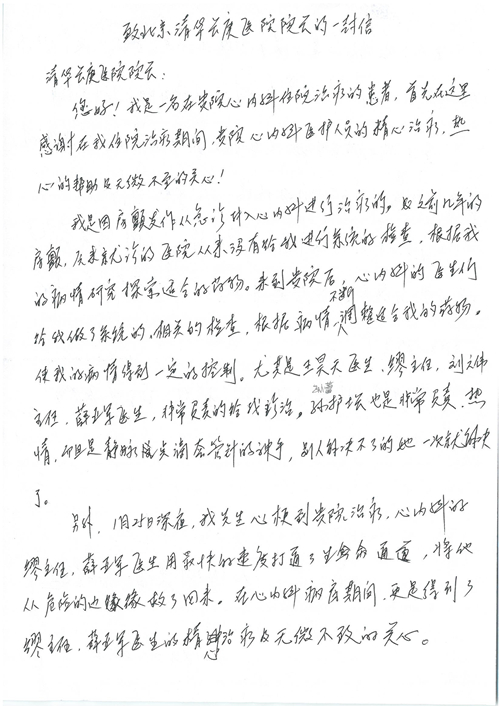 致北京清华长庚医院院长的一封信
清华长庚医院院长：
您好！我是一名在贵院心内科住院治疗的患者，首先在这里
感谢在我住院治疗期间，贵院心内科医护人员的精心治疗，热
心的帮助及无微不至的关心！
我是因房颤发作从急诊转入心内科进行治疗的。及之前几年的
房颤，原来就诊的医院从来没有给我进行系统的检查，根据我
的病情研究探索适合的药物。来到贵院后，心内科的医生们
给我做了系统的，相关的检查，根据病情不断调整适合我的药物。
使我的病情得到一定的控制。尤其是王昊天医生，缪主任，刘文伟
主任，薛亚军医生，非常负责的给我诊治。孙护士也是非常负责、热
情，而且是静脉留点滴套管针的神手，别人解决不了的她一次就解决
了。
另外，1月21日深夜，我先生心梗到贵院治疗，心内科的
缪主任，薛亚军医生用最快的速度打通了生命通道，将他
从危险的边缘救了回来。在心内科病房期间，更是得到了
缪主任、薛亚军医生的精心治疗及无微不致的关心。